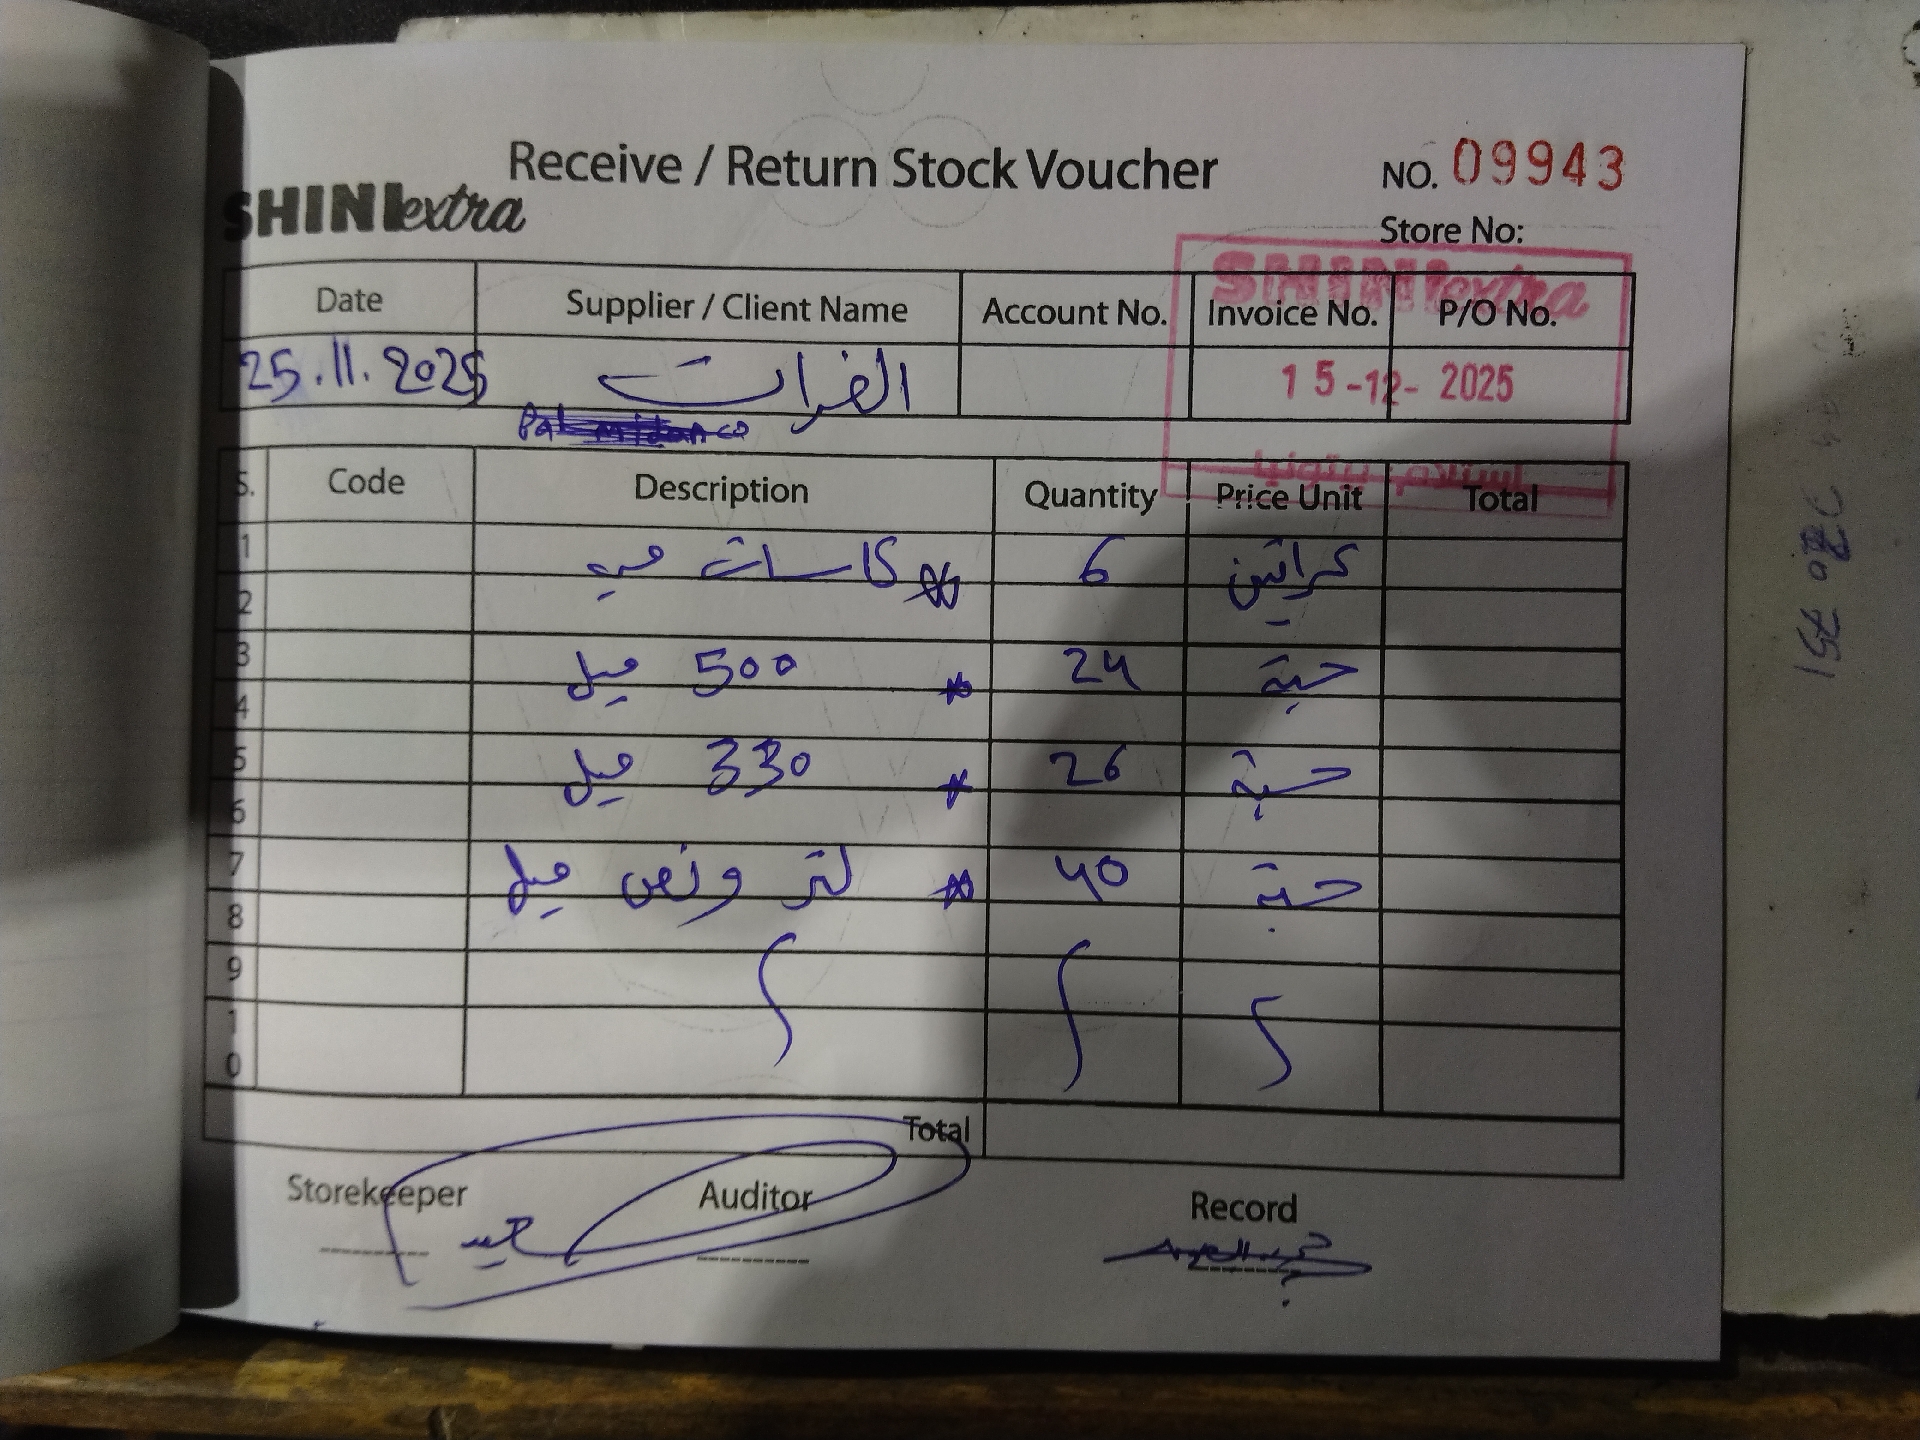 Receive / Return Stock Voucher
NO. 09943
SHINI extra
Store No:
SHINI extra
Date Supplier / Client Name Account No. Invoice No. P/O No.
25.11.2025 الفرات 15-12-2025
استلام بيتونيا
S. Code Description Quantity Price Unit Total
1 * كاسات مي 6 كراتين
2
3 * 500 ميل 24 حبة
4
5 * 330 ميل 26 حبة
6
7 * لتر ونص ميل 40 حبة
8
9
10
Total
Storekeeper Auditor Record